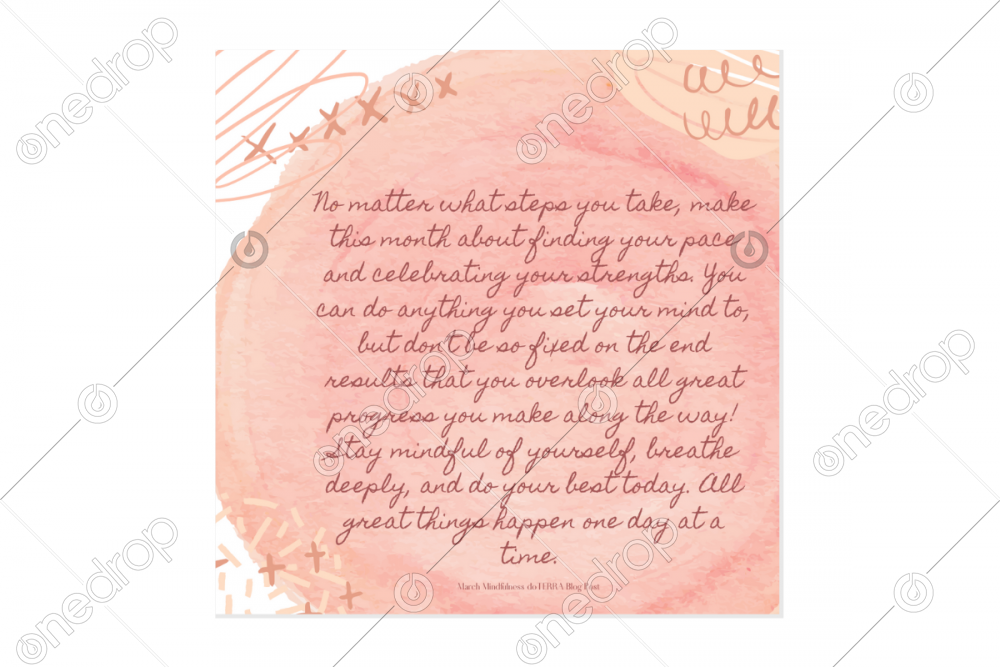 No matter what steps you take, make
this month about finding your pace
and celebrating your strengths. You
can do anything you set your mind to,
but don't be so fixed on the end
results that you overlook all great
progress you make along the way!
Stay mindful of yourself, breathe
deeply, and do your best today. All
great things happen one day at a
time.
March Mindfulness doTERRA Blog Post
onedrop
onedrop
onedrop
onedrop
onedrop
onedrop
onedrop
onedrop